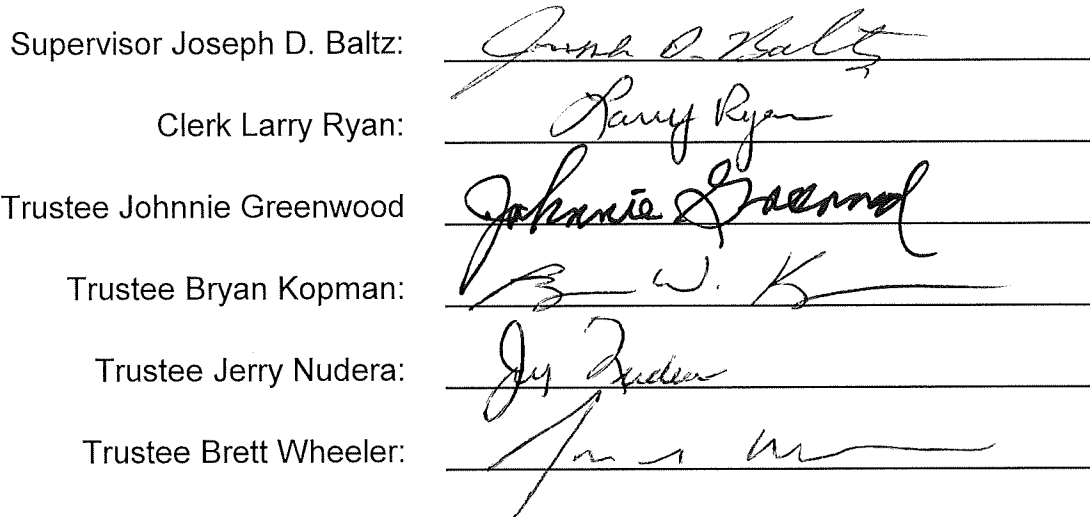 Supervisor Joseph D. Baltz: Joseph D. Baltz
Clerk Larry Ryan: Larry Ryan
Trustee Johnnie Greenwood Johnnie Greenwood
Trustee Bryan Kopman: W. K
Trustee Jerry Nudera: Jerry Nudera
Trustee Brett Wheeler: